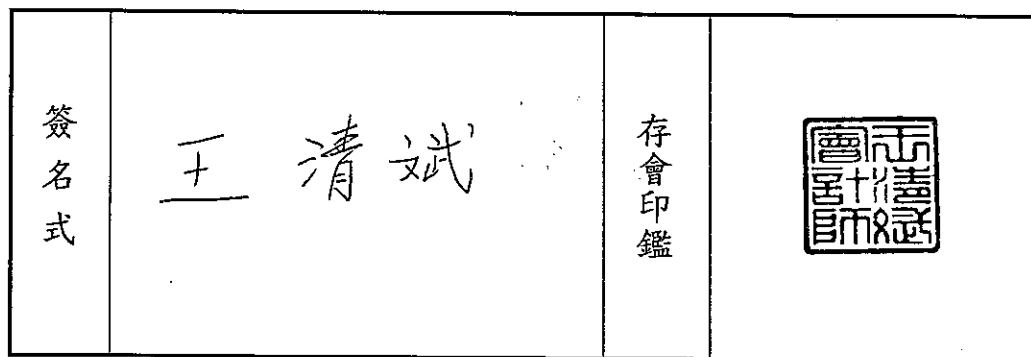 簽名式
王清斌
存會印鑑
王清斌
會計師